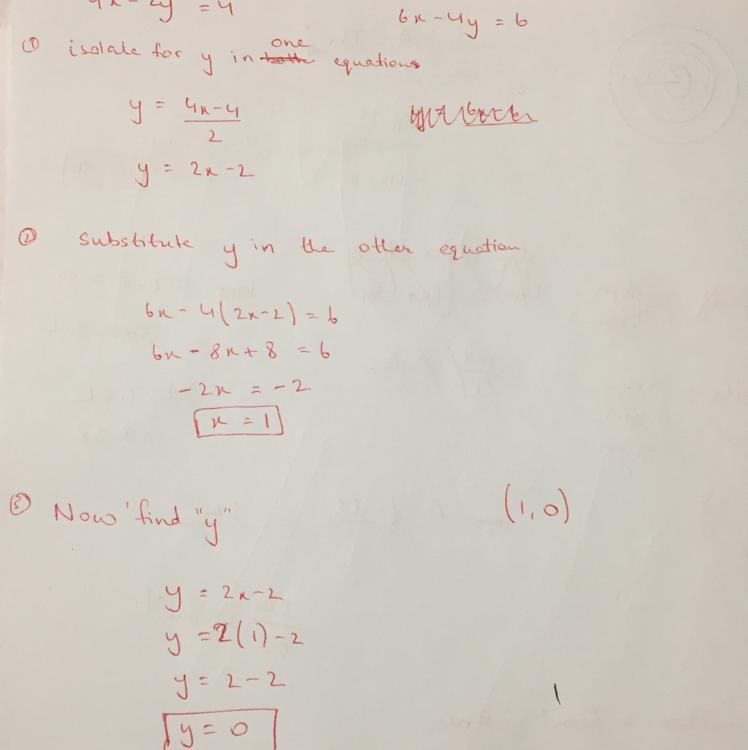 4x - 2y = 4 6x - 4y = 6
① isolate for y in one equations
y = 4x-4
2
y = 2x - 2
② substitute y in the other equation
6x - 4(2x-2) = 6
6x - 8x + 8 = 6
-2x = -2
x = 1
③ Now find "y" (1,0)
y = 2x-2
y = 2(1) - 2
y = 2 - 2
y = 0